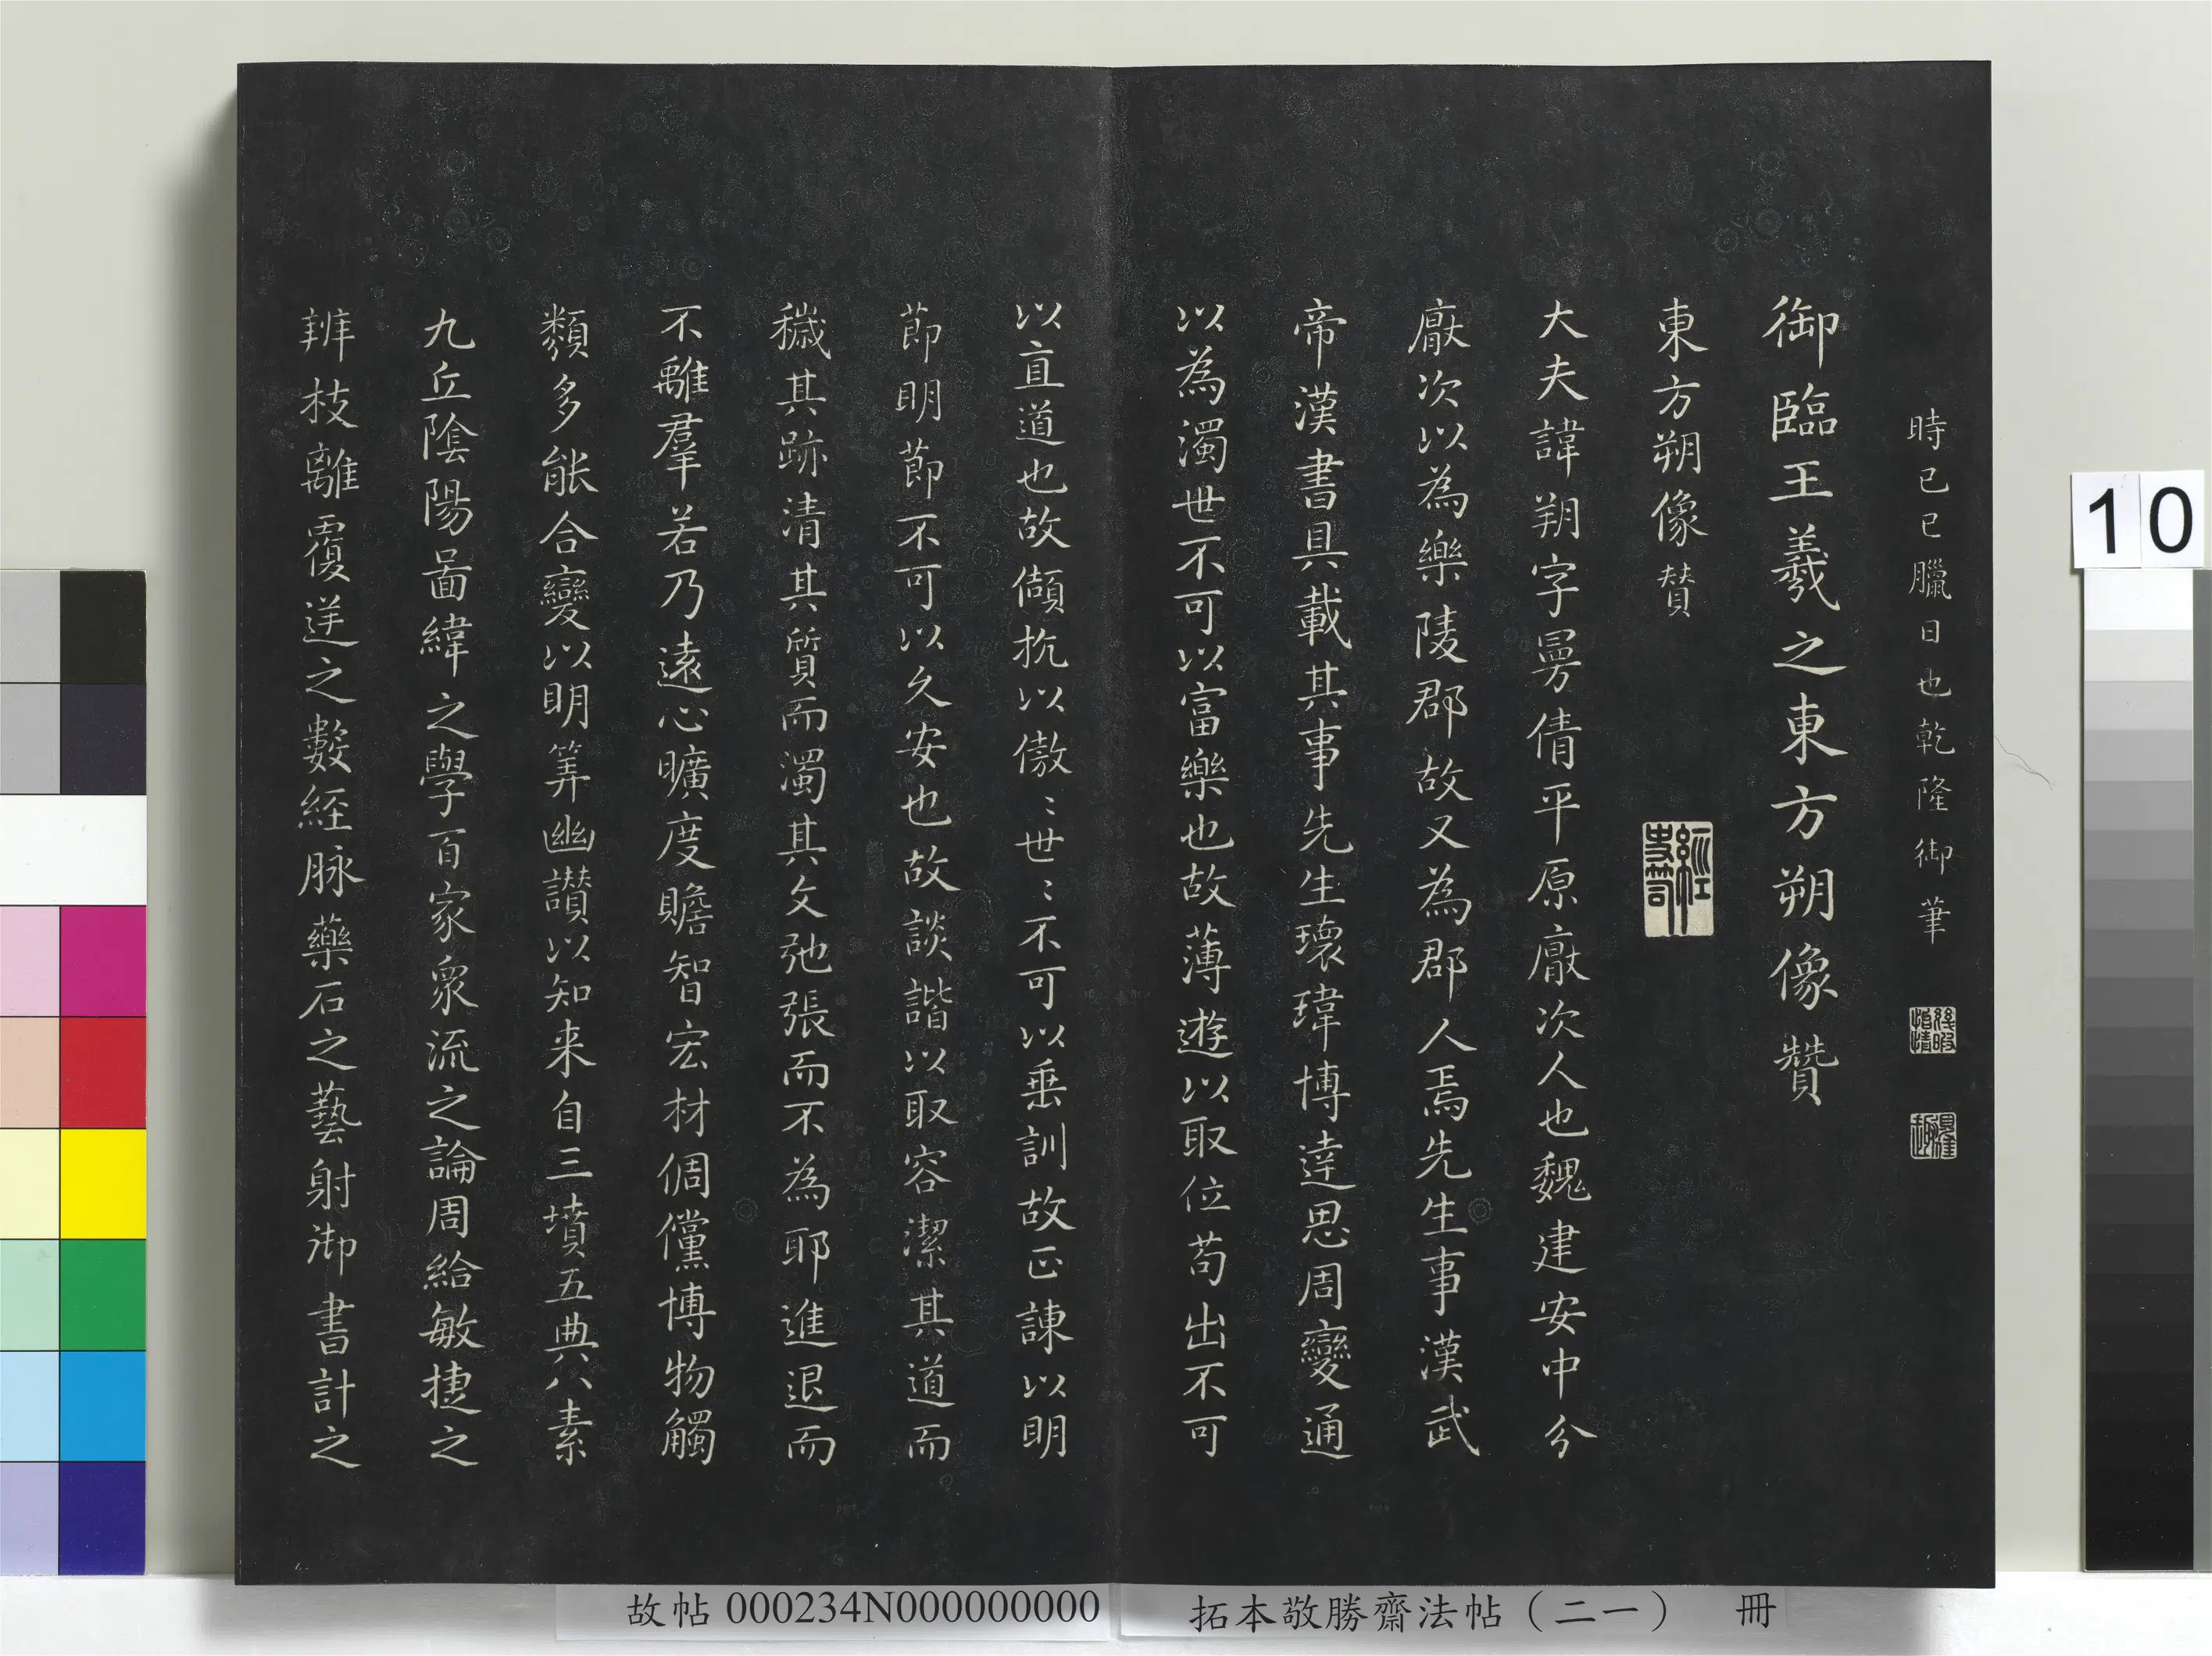 時己巳臘日也乾隆御筆
御臨王羲之東方朔像贊
東方朔像賛
大夫諱朔字曼倩平原厭次人也魏建安中分
厭次以為樂陵郡故又為郡人焉先生事漢武
帝漢書具載其事先生瓌瑋博達思周變通
以為濁世不可以富樂也故薄遊以取位苟出不可
以直道也故傾抗以傲〻世〻不可以垂訓故正諫以明
莭明莭不可以久安也故談諧以取容潔其道而
穢其跡清其質而濁其文弛張而不為耶進退而
不離羣若乃遠心曠度贍智宏材倜儻博物觸
類多能合變以明筭幽讃以知来自三墳五典八素
九丘陰陽啚緯之學百家衆流之論周給敏捷之
辨枝離覆逆之數経脉藥石之藝射御書計之
10
故帖000234N000000000
拓本敬勝齋法帖（二一） 冊